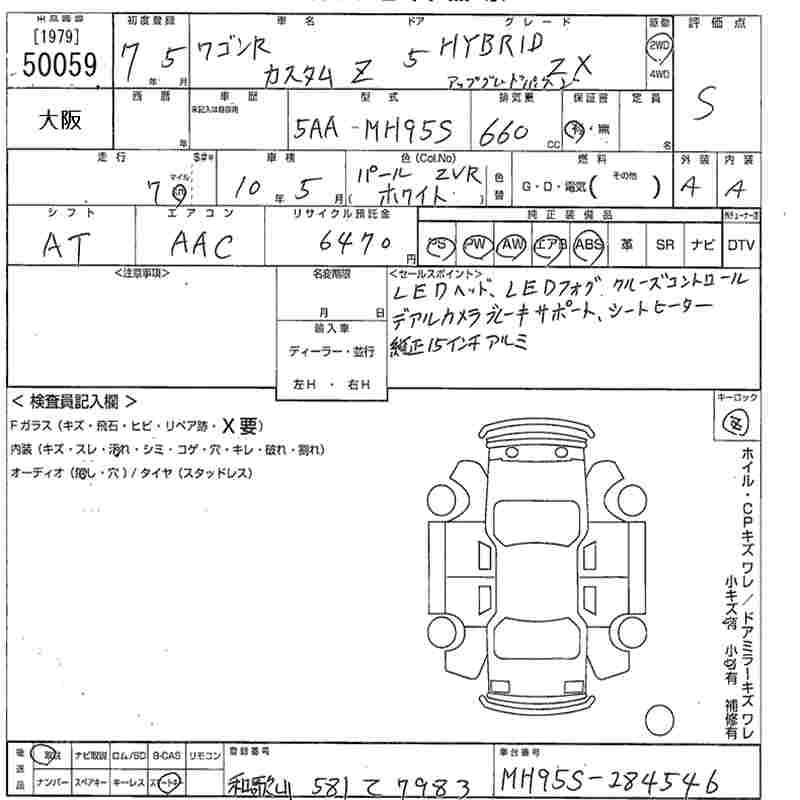 [1979]
50059
初度登録
7年 5月
車名
ワゴンR
カスタム Z
ドア
5
グレード
HYBRID
ZX
駆動
2WD
4WD
評価点
S
大阪
西暦
年
車歴
未記入は自家用
型式
5AA-MH95S
排気量
660 CC
保証書
有・無
定員
名
走行
マイル
7 km
S#*
車検
10年 5月
色 (Col.No)
パール ZVR
( ホワイト )
色替
燃料
G・D・電気( その他 )
外装
A
内装
A
シフト
AT
エアコン
AAC
リサイクル預託金
6470円
純正装備品
PS PW AW エアB ABS 革 SR ナビ
DTV
<注意事項>
名変期限
月 日
輸入車
ディーラー・並行
左H ・ 右H
<セールスポイント>
LEDヘッド、LEDフォグ クルーズコントロール
デアルカメラブレーキサポート、シートヒーター
純正15インチアルミ
< 検査員記入欄 >
Fガラス (キズ・飛石・ヒビ・リペア跡・X要)
内装 (キズ・スレ・汚れ・シミ・コゲ・穴・キレ・破れ・割れ)
オーディオ (無し・穴) / タイヤ (スタッドレス)
キーロック
ホイル・CPキズ ワレ / ドアミラーキズ ワレ
小キズ有 小凹有 補修有
後送品
取説 ナビ取説 ロム/SD B-CAS リモコン
ナンバー スペアキー キーレス スマートキー
登録番号
和歌山 581 て 7983
車台番号
MH95S-284546